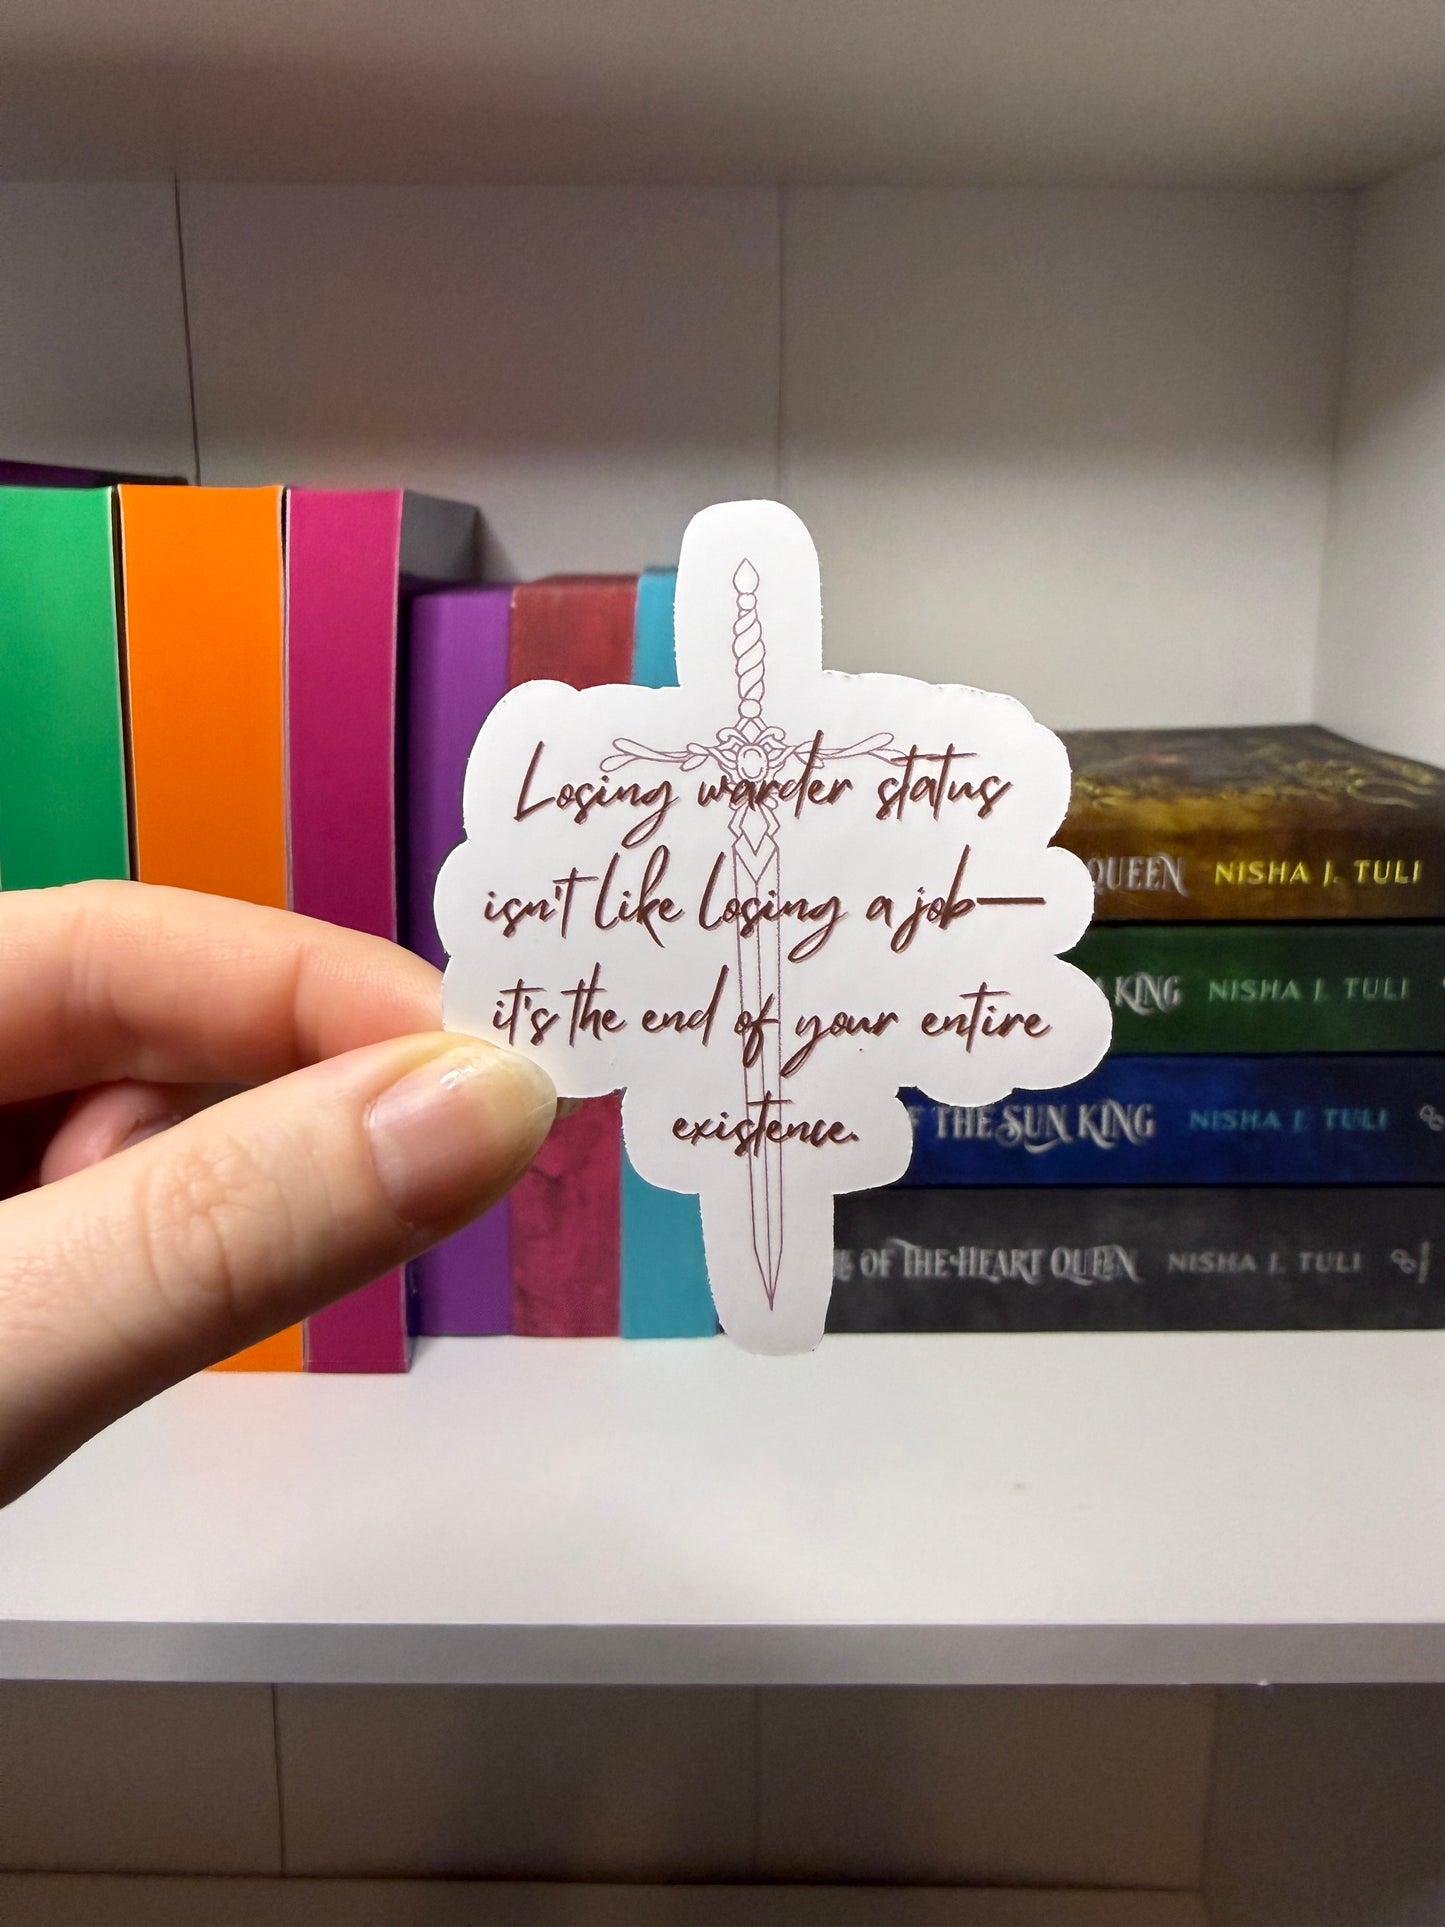 Losing warder status
isn't like losing a job—
it's the end of your entire
existence.
QUEEN NISHA J. TULI
KING NISHA J. TULI
THE SUN KING NISHA J. TULI
OF THE HEART QUEEN NISHA J. TULI